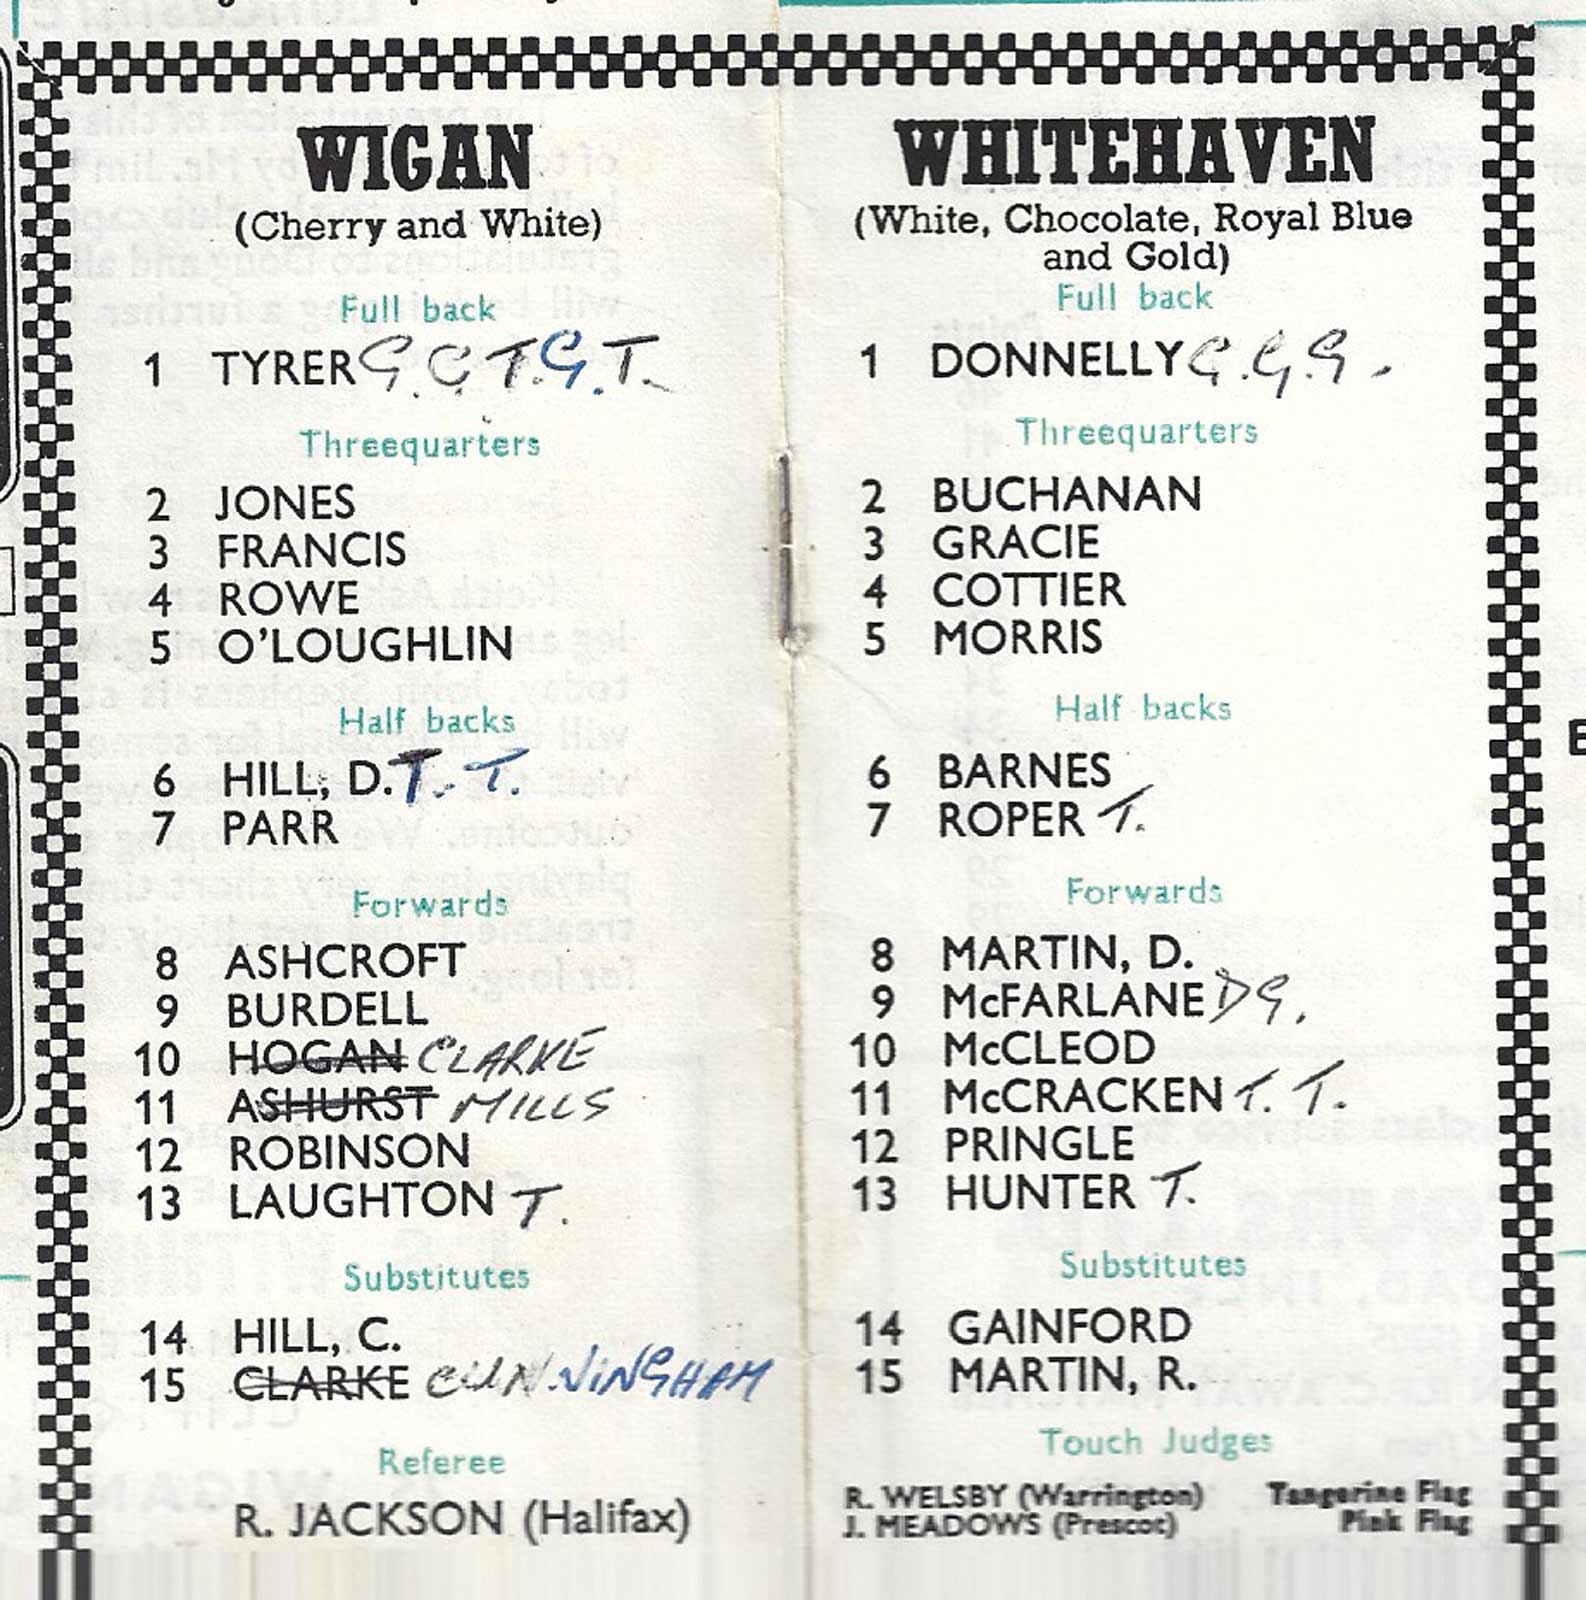 WIGAN
(Cherry and White)
Full back
1 TYRER G.C.T.G.T.
Threequarters
2 JONES
3 FRANCIS
4 ROWE
5 O'LOUGHLIN
Half backs
6 HILL, D. T. T.
7 PARR
Forwards
8 ASHCROFT
9 BURDELL
10 HOGAN CLARKE
11 ASHURST MILLS
12 ROBINSON
13 LAUGHTON T.
Substitutes
14 HILL, C.
15 CLARKE CUNNINGHAM
Referee
R. JACKSON (Halifax)
WHITEHAVEN
(White, Chocolate, Royal Blue
and Gold)
Full back
1 DONNELLY G.G.G.
Threequarters
2 BUCHANAN
3 GRACIE
4 COTTIER
5 MORRIS
Half backs
6 BARNES
7 ROPER T.
Forwards
8 MARTIN, D.
9 McFARLANE DG.
10 McCLEOD
11 McCRACKEN T. T.
12 PRINGLE
13 HUNTER T.
Substitutes
14 GAINFORD
15 MARTIN, R.
Touch Judges
R. WELSBY (Warrington) Tangerine Flag
J. MEADOWS (Prescot) Pink Flag